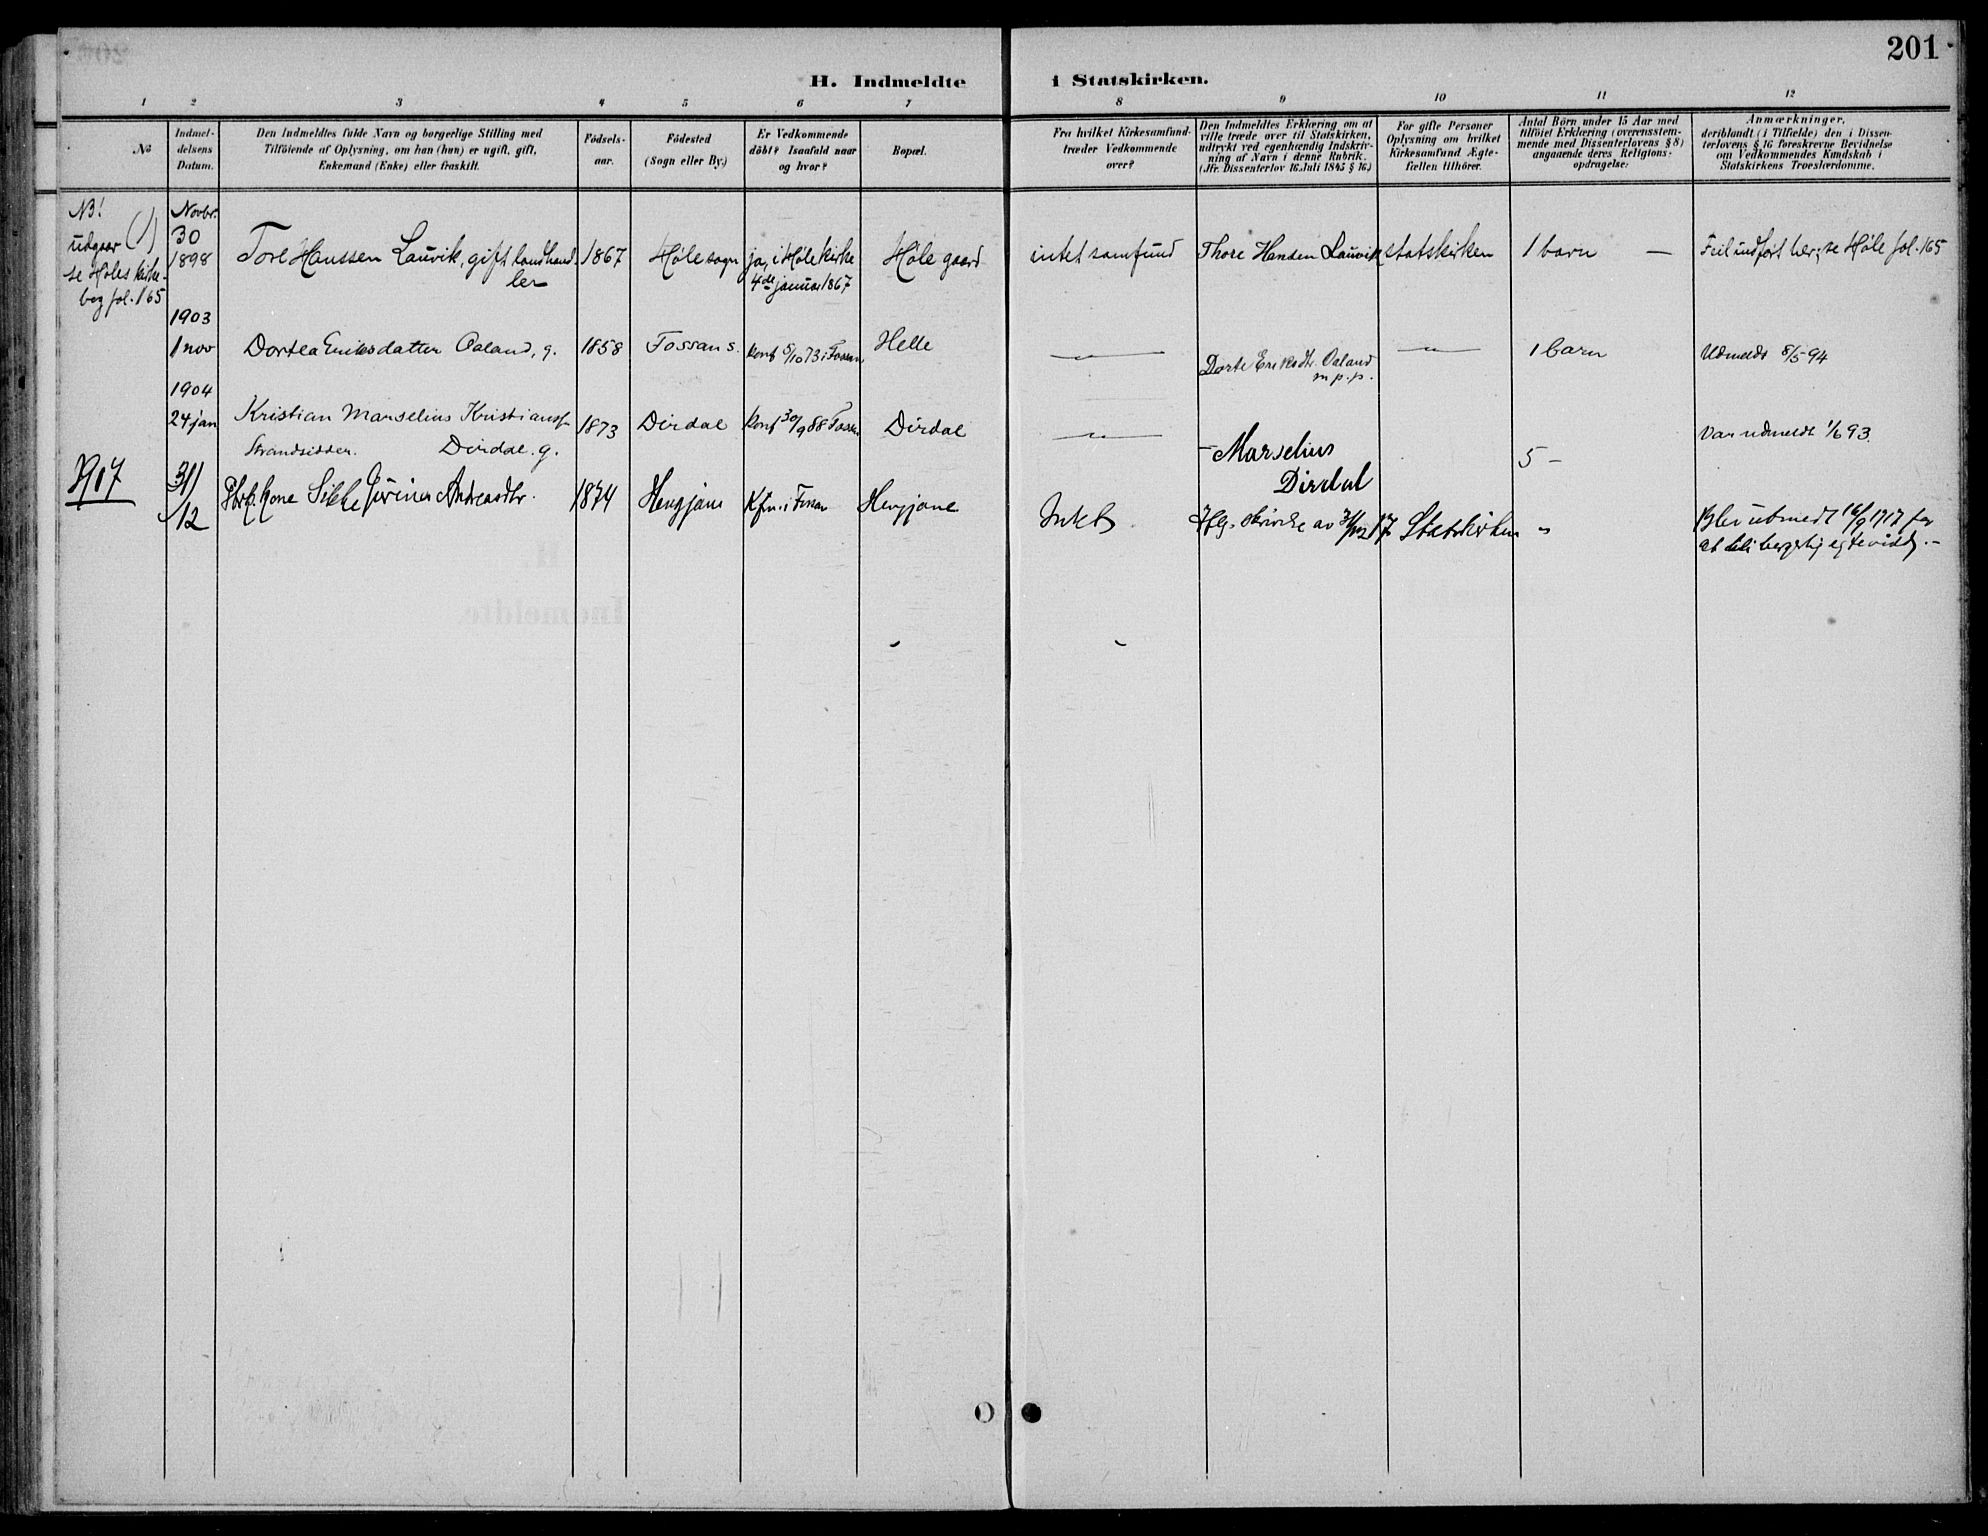 201
H. Indmeldte i Statskirken.
1 2 3 4 5 6 7 8 9 10 11 12
No
Indmel-
delsens
Datum.
Den Indmeldtes fulde Navn og borgerlige Stilling med
Tilföiende af Oplysning, om han (hun) er ugift, gift,
Enkemand (Enke) eller fraskilt.
Födsels-
aar.
Födested
(Sogn eller By.)
Er Vedkommende
döbt? Isaafald naar
og hvor?
Bopæl.
Fra hvilket Kirkesamfund
træder Vedkommende
over?
Den Indmeldtes Erklæring om at
ville træde over til Statskirken,
udtrykt ved egenhændig Indskriv-
ning af Navn i denne Rubrik.
(Jfr. Dissenterlov 16. Juli 1845 § 16.)
For gifte Personer
Oplysning om hvilket
Kirkesamfund Ægte-
fællen tilhörer.
Antal Börn under 15 Aar med
tilföiet Erklæring (overensstem-
mende med Dissenterlovens § 8)
angaaende deres Religions-
opdragelse.
Anmærkninger,
deriblandt (i Tilfælde) den i Dissen-
terlovens § 16 foreskrevne Bevidnelse
om Vedkommendes Kundskab i
Statskirkens Troeslærdomme.
NB!
udgaar (1)
se Høles kirke-
bog fol. 165
Novbr.
30
1898
Tore Hanssen Lauvik, gift landhand-
ler
1867
Høle sogn
ja, i Høle kirke
4de januar 1867
Høle gaard
intet samfund
Thore Hansen Lauvik
statskirken
1 barn —
Feil indført her; se Høle fol. 165
1903
1 nov
Dortea Eriksdatter Oaland, g.
1858
Fossan s.
konf 5/10 73 i Fossan
Helle
— " —
Dorte Eriksdtr. Oaland
m.p.p.
— " —
1 barn
Udmeldt 8/5 94
1904
24 jan
Kristian Marselius Kristianss.
Strandsidder. Dirdal. g.
1873
Dirdal
konf 30/9 88 Fossan
Dirdal
— " —
Marselius
Dirdal
5 –
Var udmeldt 1/6 93.
1917
31/12
Kone Sikke Jørine Andreasdtr.
1874
Hengjane
Kfm. i Fossan
Hengjane
Intet
Ifg. skrivelse av 31/12 17
Statskirken
"
Blev utmeldt 16/9 1917 for
at bli borgerlig egteviedd. –